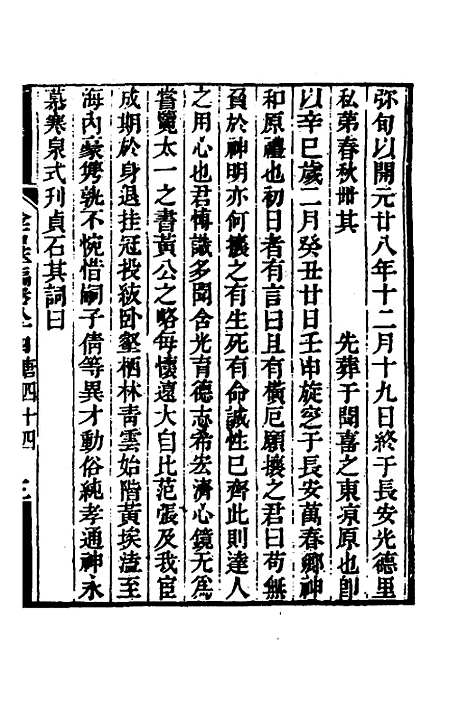 弥旬以開元廿八年十二月十九日終于長安光德里
私第春秋卌其　　　先葬于聞喜之東涼原也卽
以辛巳歲二月癸丑廿日壬申旋窆于長安萬春鄉神
和原禮也初日者有言曰且有橫厄願攘之君曰苟無
負於神明亦何攘之有生死有命誠性已齊此則達人
之用心也君博識多聞含光育德志希宏濟心鏡无爲
嘗覽太一之書黃公之略每懷遠大自比范張及我宦
成期於身退挂冠投紱臥壑栖林靑雲始階黃埃溘至
海內豪儁孰不惋惜嗣子倩等異才動俗純孝通神永
慕寒泉式刊貞石其詞曰
唐四十四